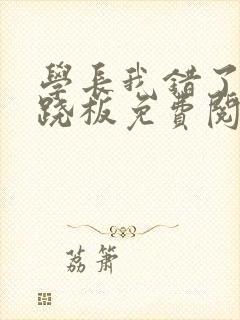 學長我錯了
跷板免費閱
荔簫